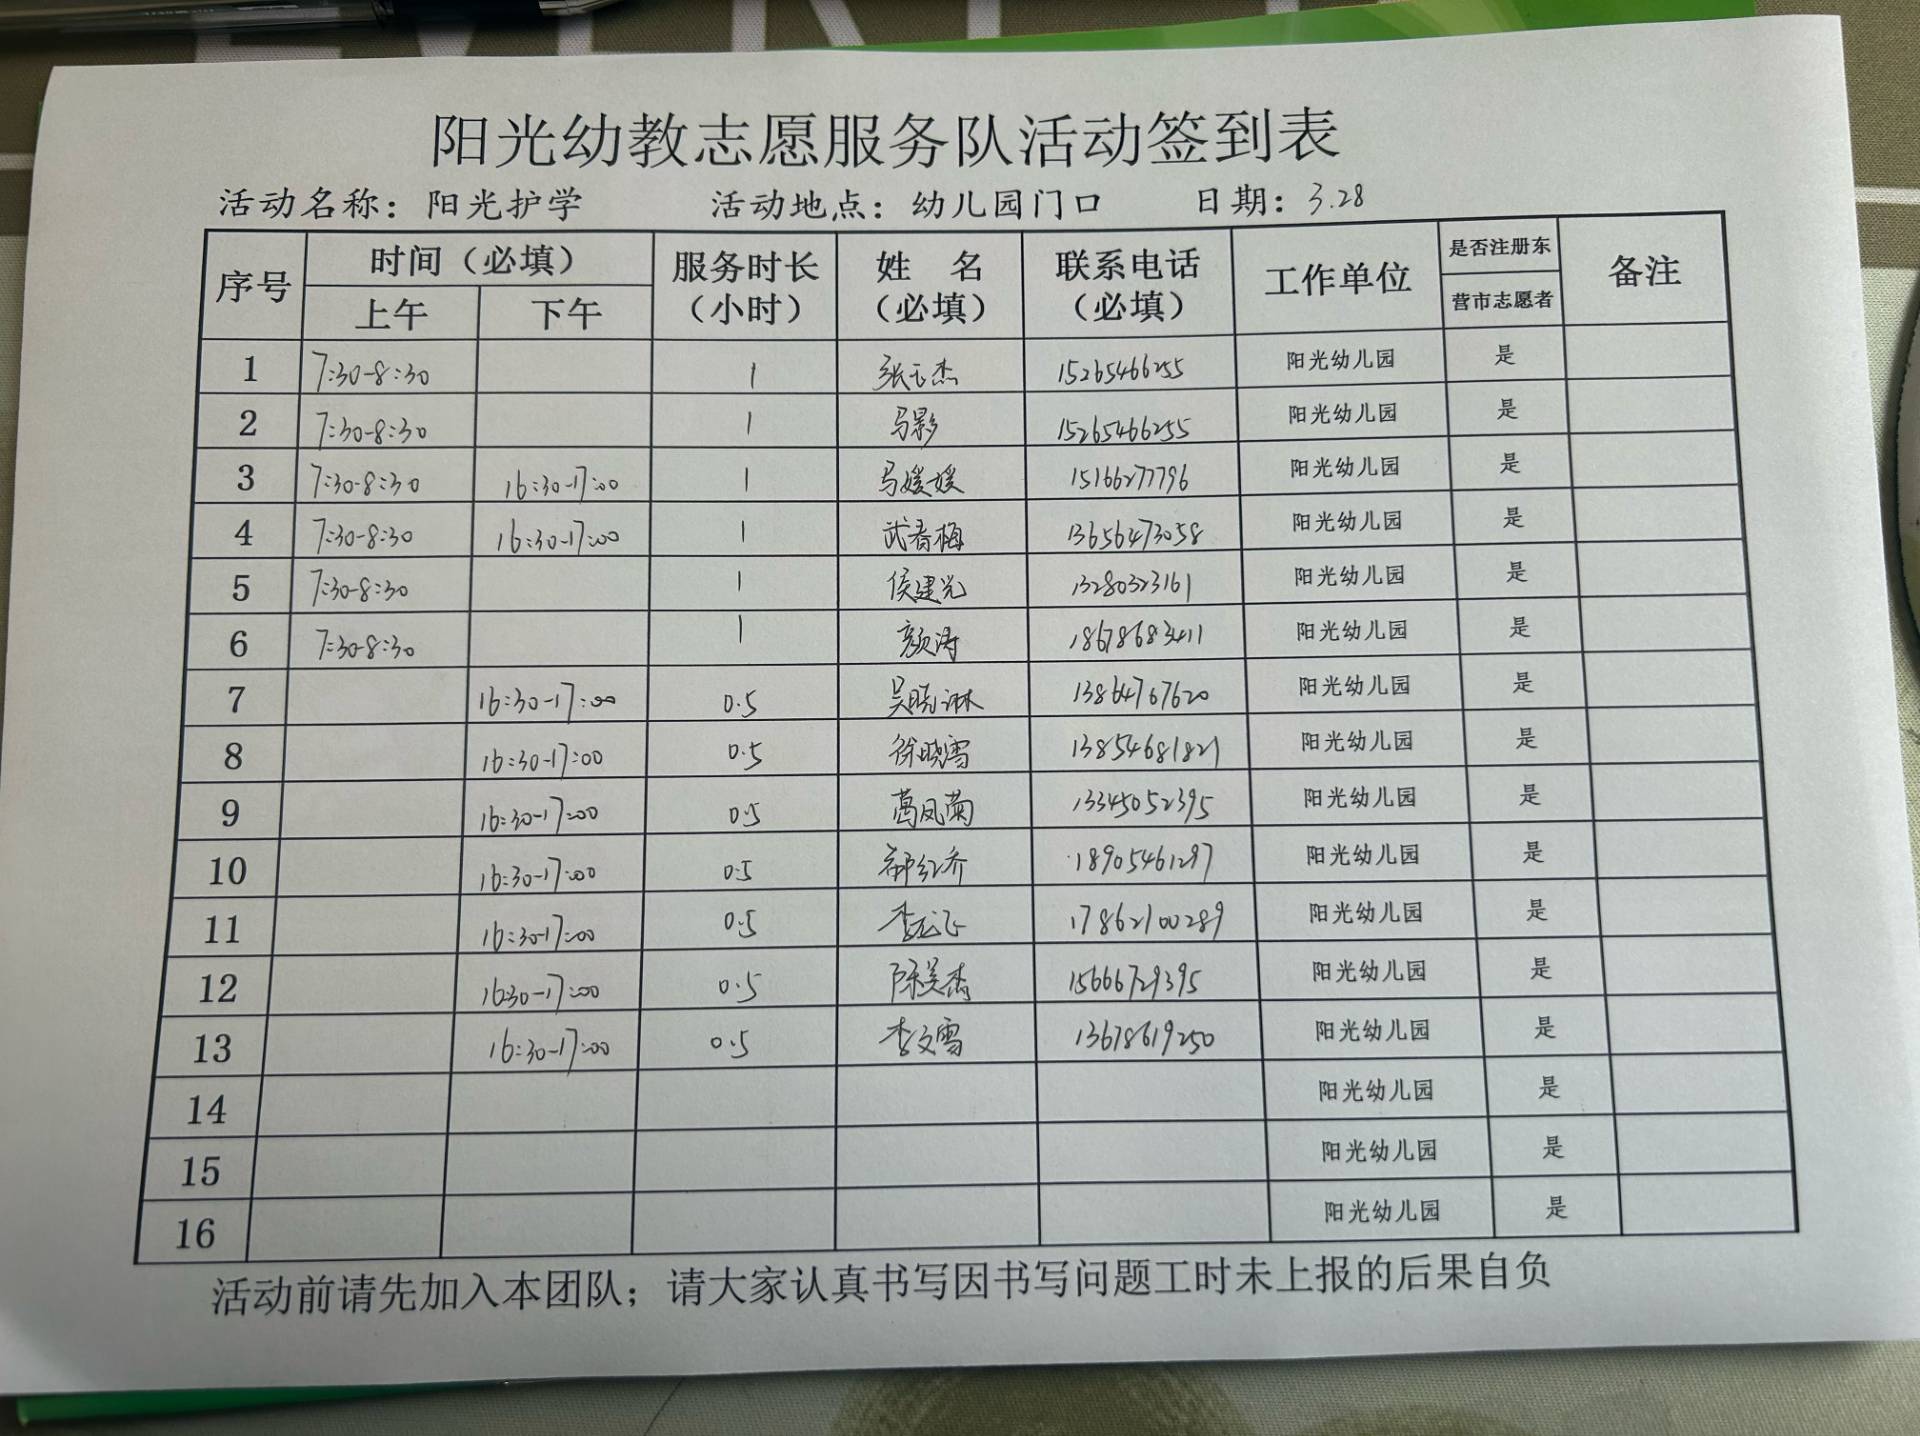 阳光幼教志愿服务队活动签到表
活动名称：阳光护学 活动地点：幼儿园门口 日期：3.28
序号 时间（必填） 上午 下午 服务时长（小时） 姓名（必填） 联系电话（必填） 工作单位 是否注册东营市志愿者 备注
1 7:30-8:30 1 张玉杰 15265466255 阳光幼儿园 是
2 7:30-8:30 1 马影 15265466255 阳光幼儿园 是
3 7:30-8:30 16:30-17:00 1 马媛媛 15166277796 阳光幼儿园 是
4 7:30-8:30 16:30-17:00 1 武春梅 13656473058 阳光幼儿园 是
5 7:30-8:30 1 侯建光 13280323161 阳光幼儿园 是
6 7:30-8:30 1 颜涛 18678683411 阳光幼儿园 是
7 16:30-17:00 0.5 吴晓琳 13864767620 阳光幼儿园 是
8 16:30-17:00 0.5 徐晓雪 13854681821 阳光幼儿园 是
9 16:30-17:00 0.5 葛凤菊 13345052395 阳光幼儿园 是
10 16:30-17:00 0.5 18905461297 阳光幼儿园 是
11 16:30-17:00 0.5 17862100289 阳光幼儿园 是
12 16:30-17:00 0.5 15666729395 阳光幼儿园 是
13 16:30-17:00 0.5 李文雪 13678619250 阳光幼儿园 是
14 阳光幼儿园 是
15 阳光幼儿园 是
16 阳光幼儿园 是
活动前请先加入本团队；请大家认真书写因书写问题工时未上报的后果自负